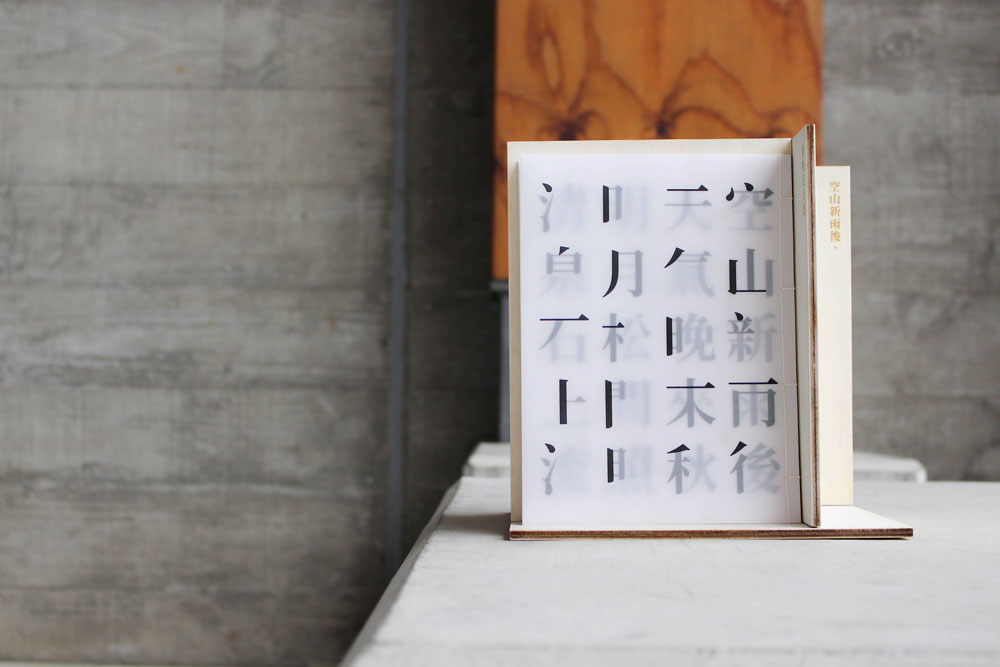 空山新雨後
天氣晚來秋
明月松間照
清泉石上流
空山新雨後，